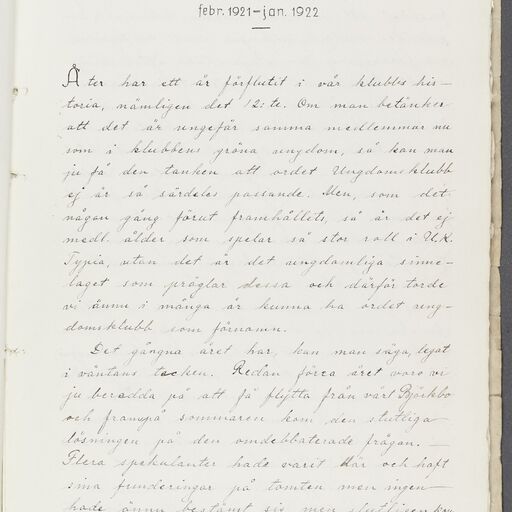 febr. 1921–jan. 1922
Åter har ett år förflutit i vår klubbs his-
toria, nämligen det 12:te. Om man betänker
att det är ungefär samma medlemmar nu
som i klubbens gröna ungdom, så kan man
ju få den tanken att ordet Ungdomsklubb
ej är så särdeles passande. Men, som det
någon gång förut framhållits, så är det ej
medl. ålder som spelar så stor roll i U.K.
Typia, utan det är det ungdomliga sinne-
laget som präglar dessa och därför torde
vi ännu i många år kunna ha ordet ung-
domsklubb som förnamn.
Det gångna året har, kan man säga, legat
i väntans tecken. Redan förra året voro vi
ju beredda på att få flytta från vårt Björkbo
och frampå sommaren kom den slutliga
lösningen på den omdebbaterade frågan. —
Flera spekulanter hade varit där och haft
sina funderingar på tomten men ingen
hade ännu bestämt sig men slutligen